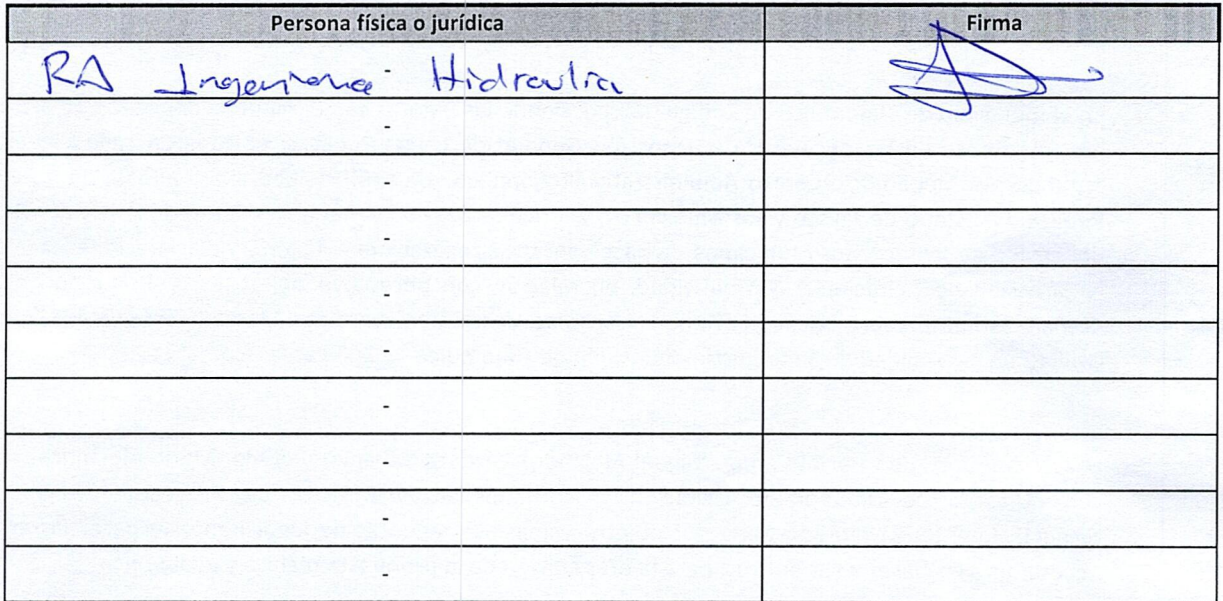 Persona física o jurídica Firma
RA Ingenieria Hidraulica
-
-
-
-
-
-
-
-
-
-